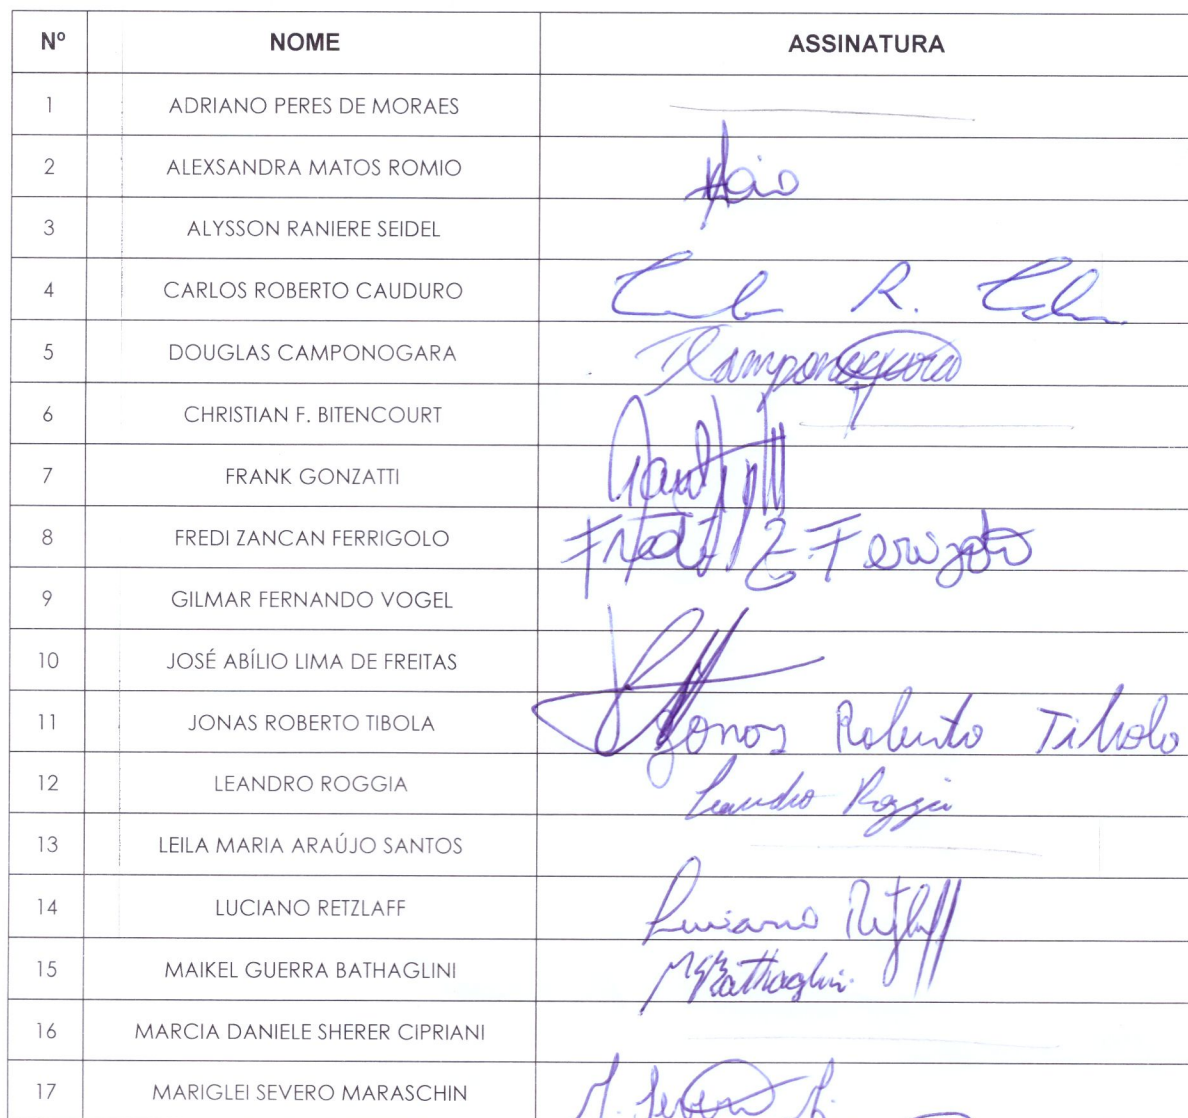 Nº NOME ASSINATURA
1 ADRIANO PERES DE MORAES
2 ALEXSANDRA MATOS ROMIO
3 ALYSSON RANIERE SEIDEL
4 CARLOS ROBERTO CAUDURO
5 DOUGLAS CAMPONOGARA DCamponogara
6 CHRISTIAN F. BITENCOURT
7 FRANK GONZATTI
8 FREDI ZANCAN FERRIGOLO Fredi Z. Ferrigolo
9 GILMAR FERNANDO VOGEL
10 JOSÉ ABÍLIO LIMA DE FREITAS
11 JONAS ROBERTO TIBOLA Jonas Roberto Tibola
12 LEANDRO ROGGIA Leandro Roggia
13 LEILA MARIA ARAÚJO SANTOS
14 LUCIANO RETZLAFF Luciano Retzlaff
15 MAIKEL GUERRA BATHAGLINI MGBathaglini
16 MARCIA DANIELE SHERER CIPRIANI
17 MARIGLEI SEVERO MARASCHIN